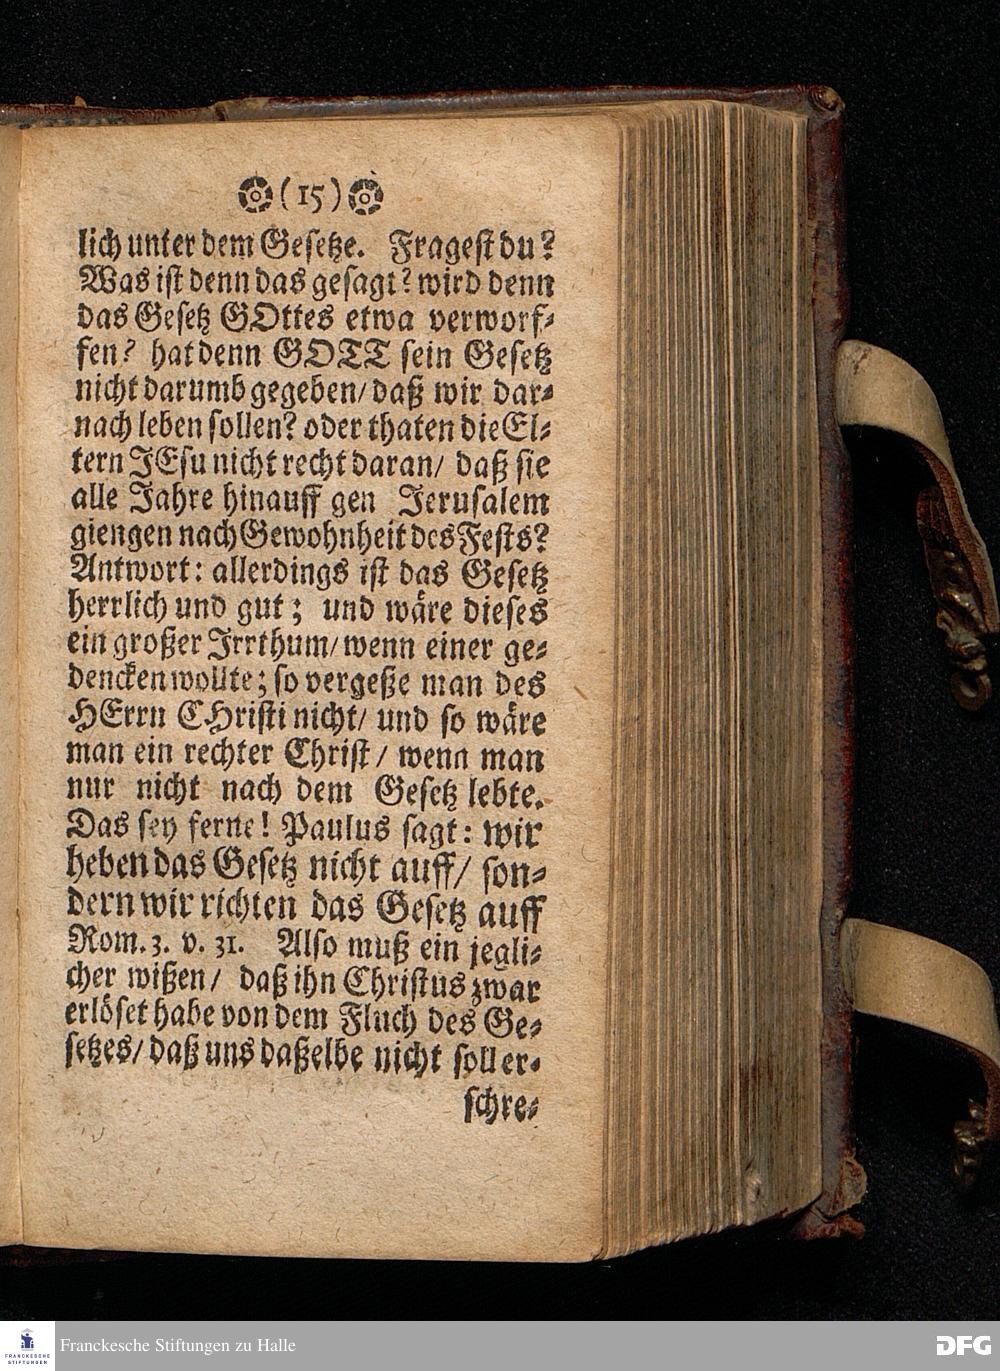 (15)
lich unter dem Gesetze. Fragest du?
Was ist denn das gesagt? wird denn
das Gesetz GOttes etwa verworf⸗
fen? hat denn GOTT sein Gesetz
nicht darumb gegeben/ daß wir dar⸗
nach leben sollen? oder thaten die El⸗
tern JEsu nicht recht daran/ daß sie
alle Jahre hinauff gen Jerusalem
giengen nach Gewohnheit des Fests?
Antwort: allerdings ist das Gesetz
herrlich und gut; und wäre dieses
ein großer Irrthum/ wenn einer ge⸗
dencken wollte; so vergeße man des
HErrn CHristi nicht/ und so wäre
man ein rechter Christ/ wenn man
nur nicht nach dem Gesetz lebte.
Das sey ferne! Paulus sagt: wir
heben das Gesetz nicht auff/ son⸗
dern wir richten das Gesetz auff
Rom. 3. v. 31. Also muß ein jegli⸗
cher wißen/ daß ihn Christus zwar
erlöset habe von dem Fluch des Ge⸗
setzes/ daß uns daßelbe nicht soll er⸗
schre⸗
FRANCKESCHE STIFTUNGEN
Franckesche Stiftungen zu Halle
DFG